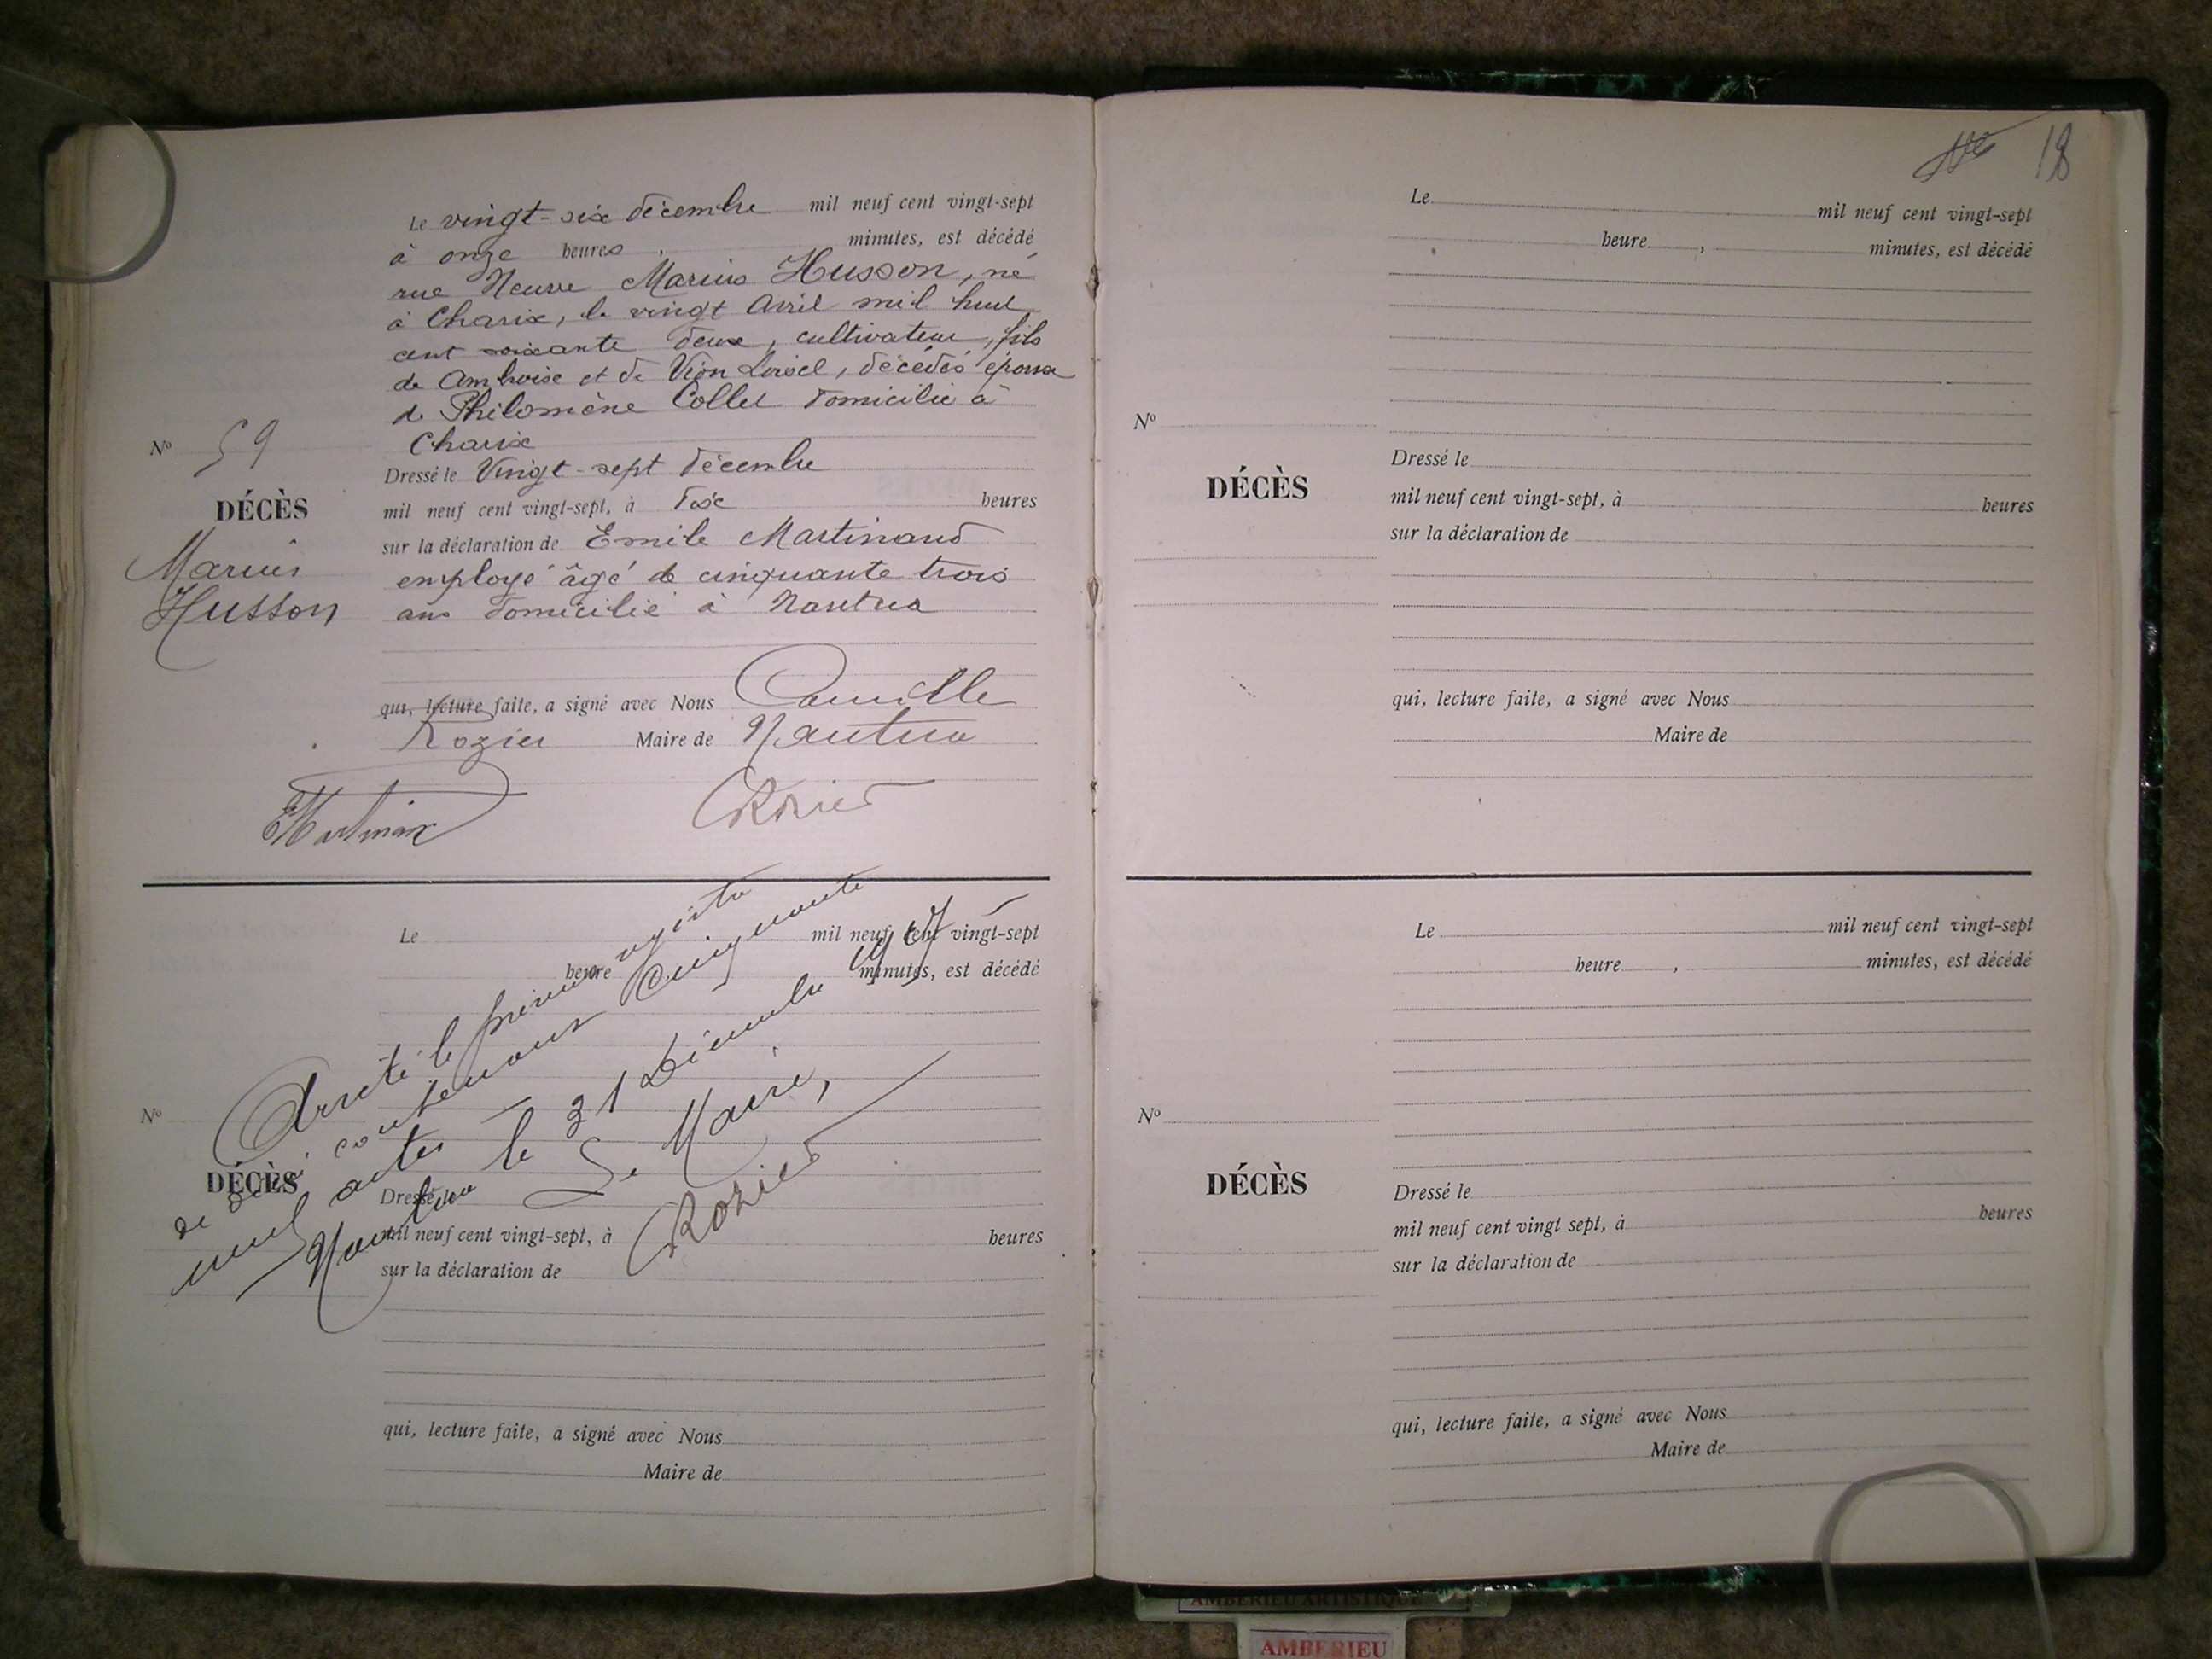 Le vingt-six décembre mil neuf cent vingt-sept
à onze heures , minutes, est décédé
rue Neuve Marius Husson, né
à Charix, le vingt Avril mil huit
cent soixante deux, cultivateur, fils
de Ambroise et de Vion Loisel, décédés époux
de Philomène Collet domicilié à
Charix
N° 59
DÉCÈS
Marius
Husson
Dressé le Vingt-sept décembre
mil neuf cent vingt-sept, à dix heures
sur la déclaration de Emile Martinand
employé âgé de cinquante trois
ans domicilié à Nantua
qui, lecture faite, a signé avec Nous Camille
Rozier Maire de Nantua
Rozier
Le mil neuf cent vingt-sept
heure minutes, est décédé
N°
DÉCÈS
Dressé le
mil neuf cent vingt-sept, à heures
sur la déclaration de
qui, lecture faite, a signé avec Nous
Maire de
Arrêté le présent registre
de décès contenant Cinquante
neuf actes
Nantua le 31 Décembre 1927
Le Maire,
Rozier
18
Le mil neuf cent vingt-sept
heure , minutes, est décédé
N°
DÉCÈS
Dressé le
mil neuf cent vingt-sept, à heures
sur la déclaration de
qui, lecture faite, a signé avec Nous
Maire de
Le mil neuf cent vingt-sept
heure , minutes, est décédé
N°
DÉCÈS
Dressé le
mil neuf cent vingt sept, à heures
sur la déclaration de
qui, lecture faite, a signé avec Nous
Maire de
AMBERIEU ARTISTIQUE
AMBERIEU